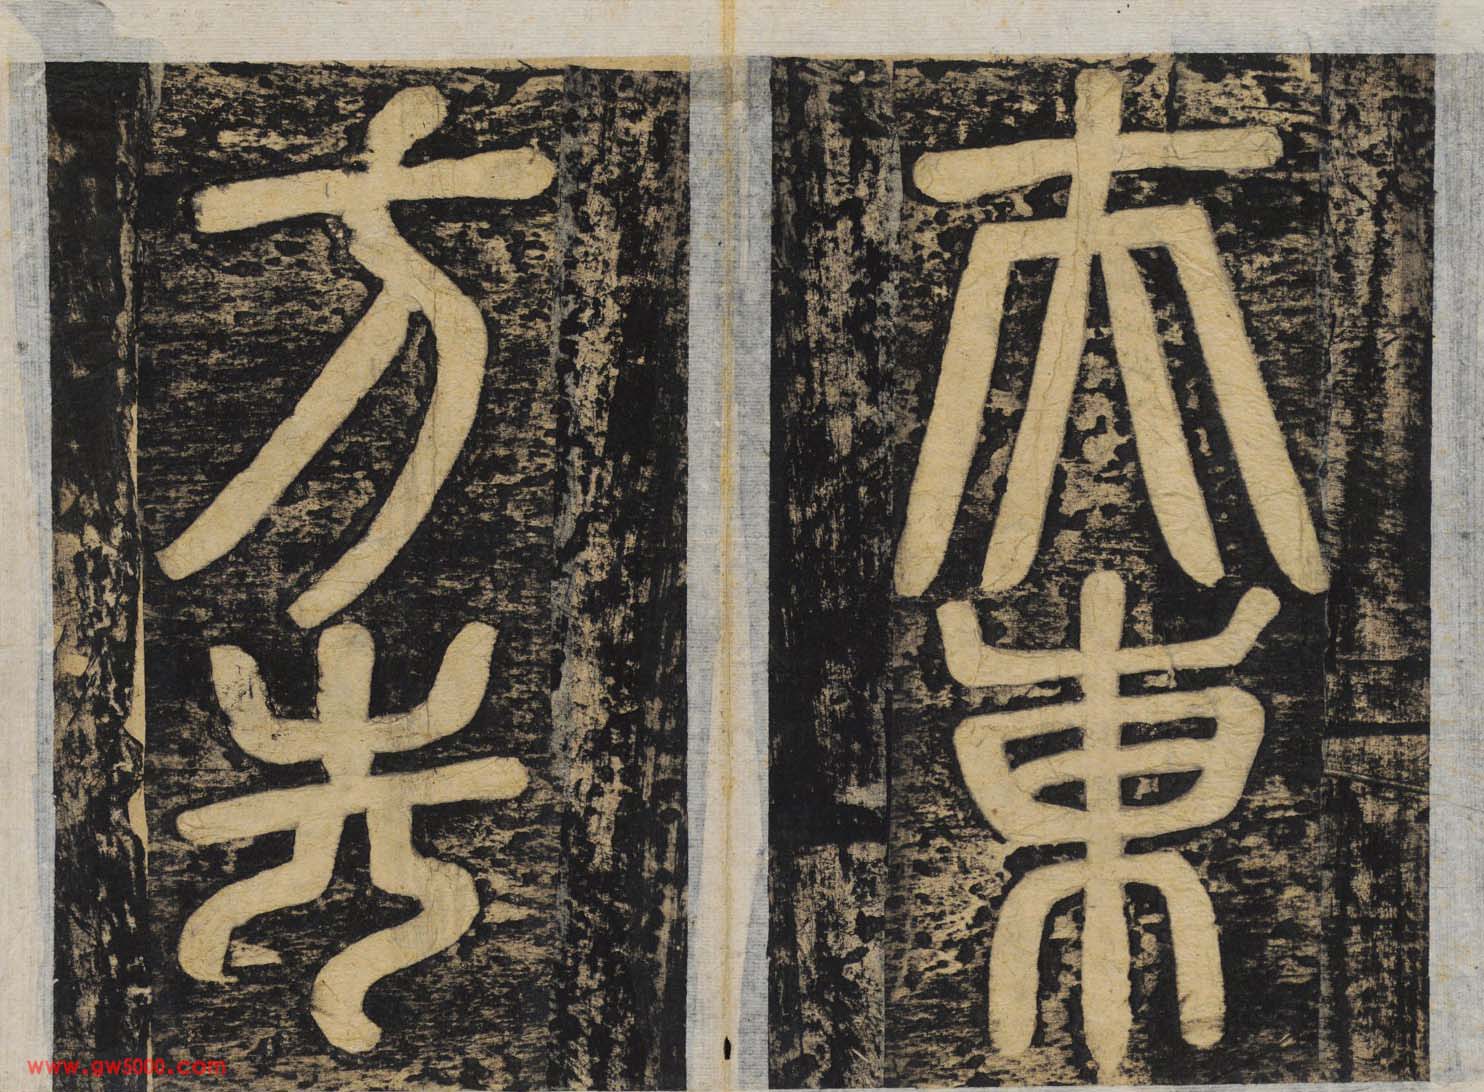 夫東
方先
www.gw5000.com